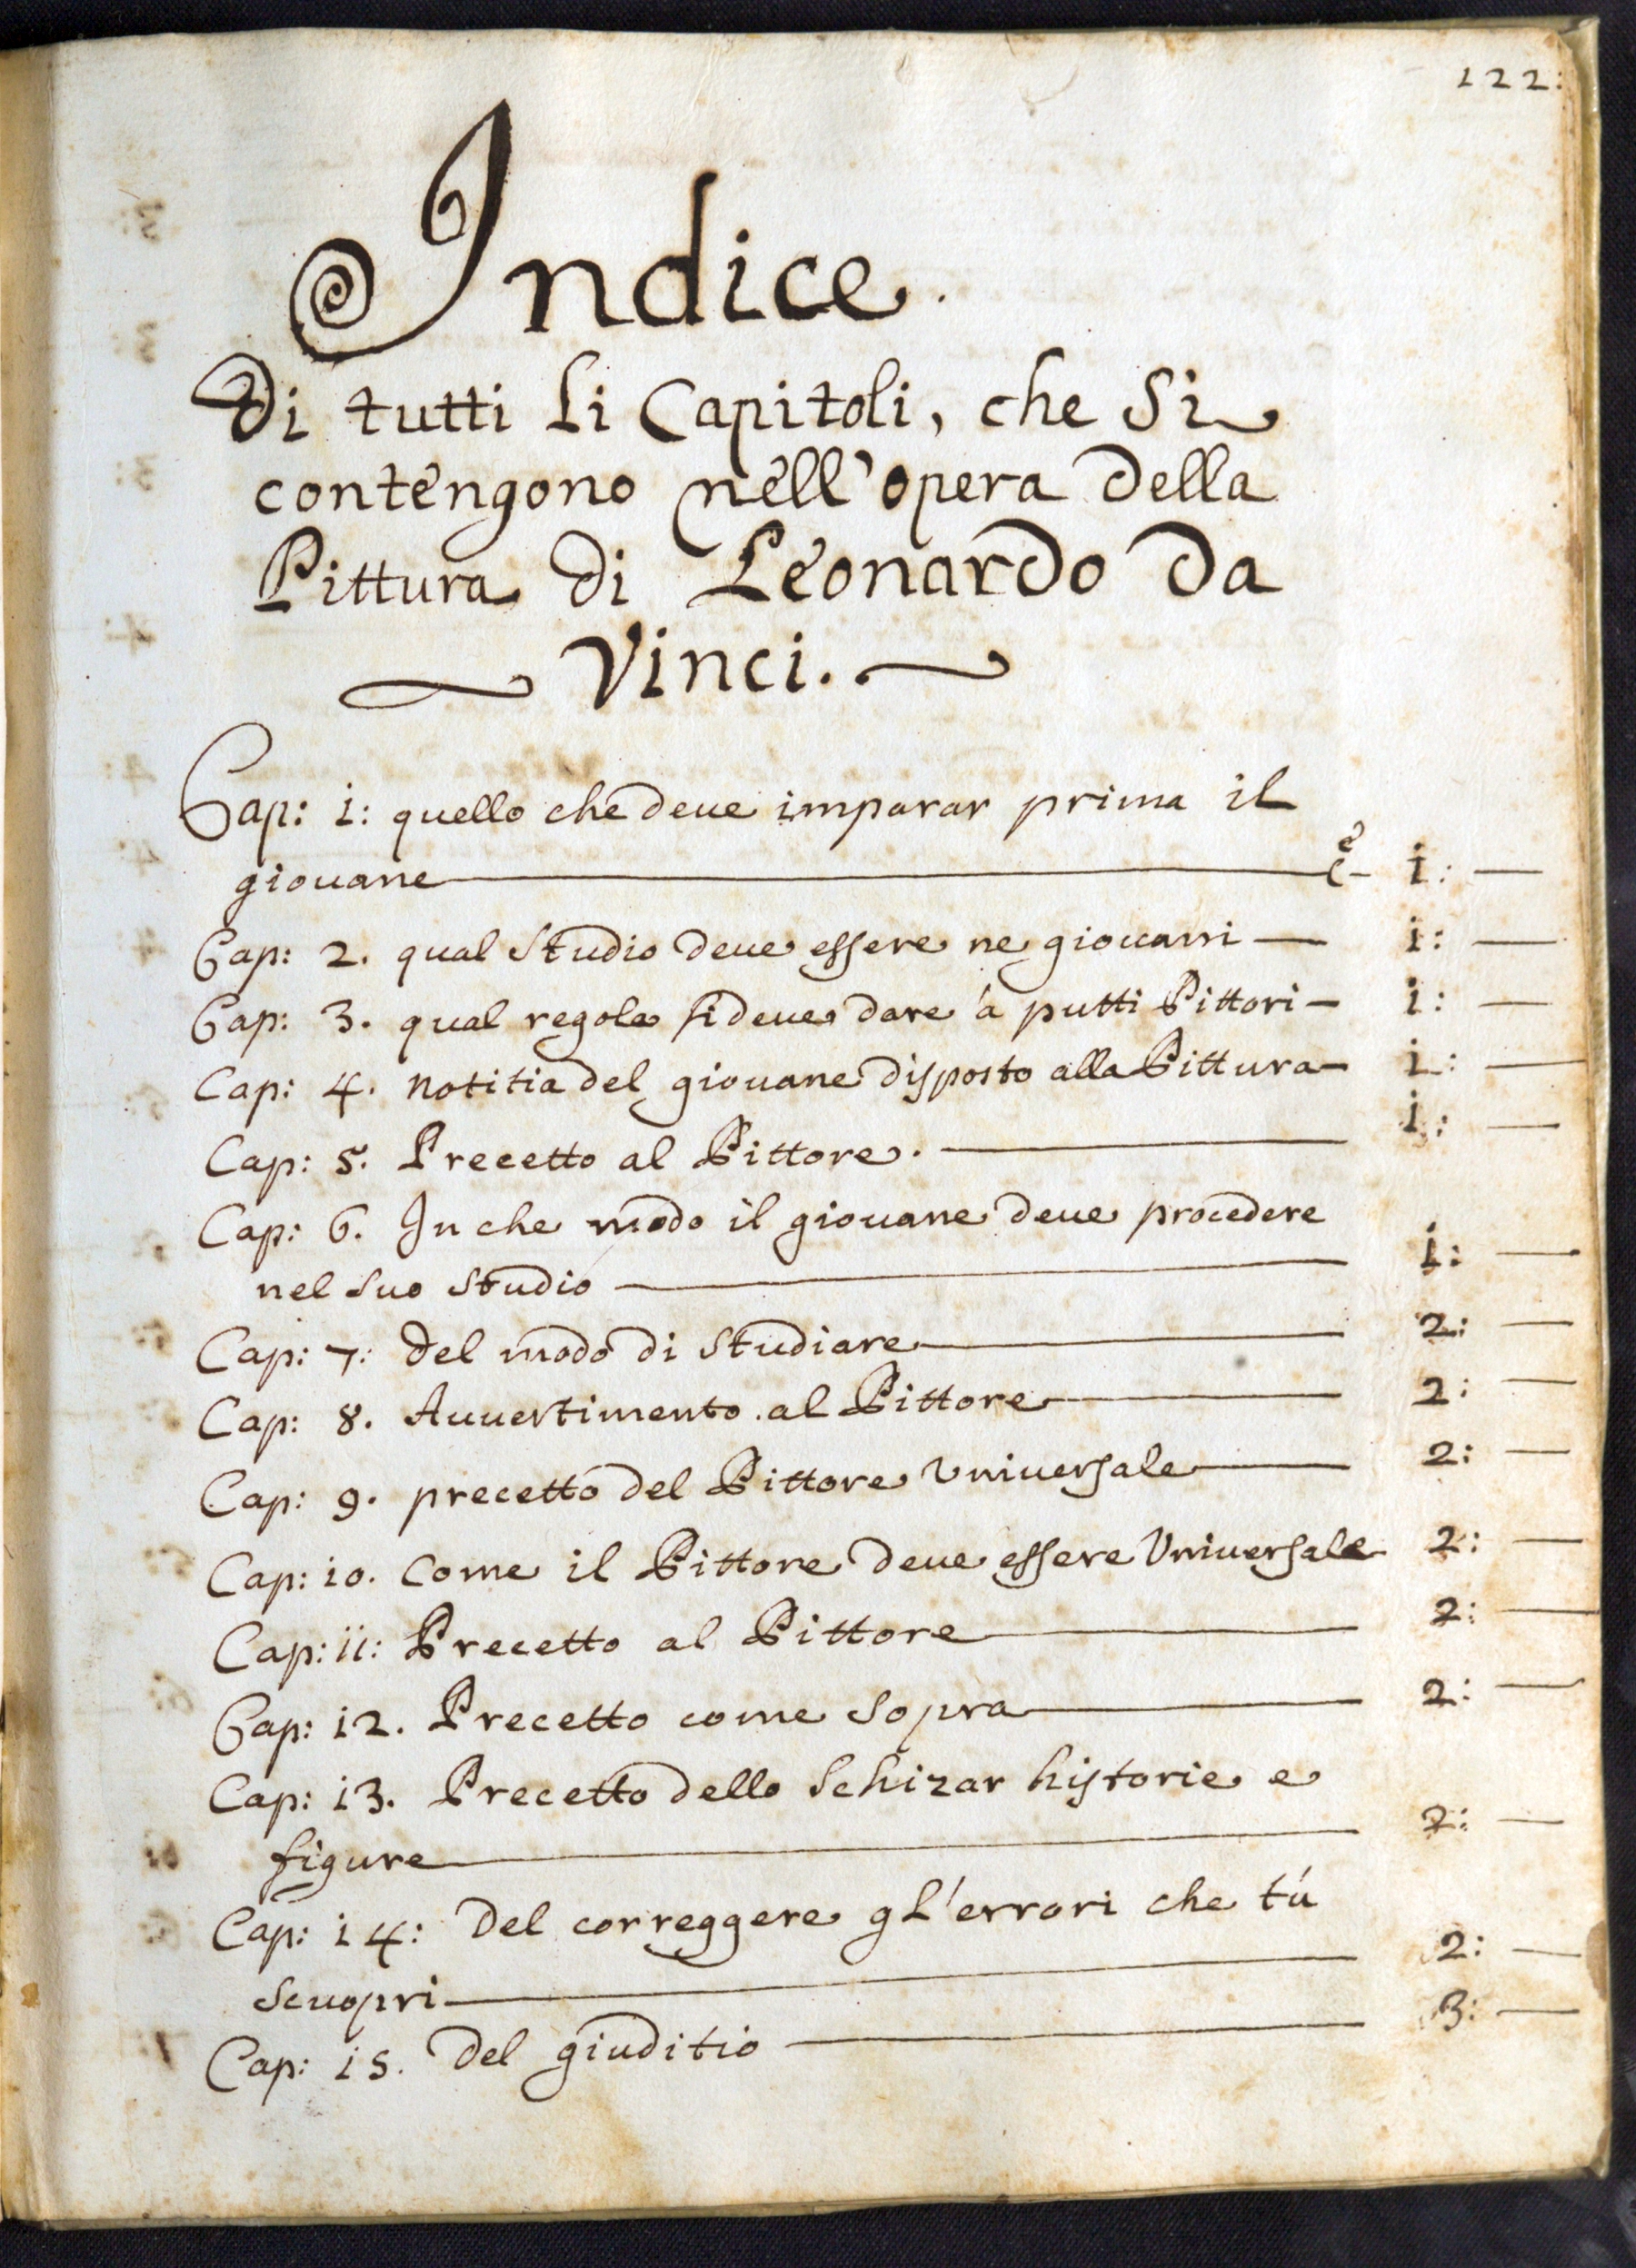 122:
Indice.
Di tutti Li Capitoli, che Si
contengono nell'opera della
Pittura di Leonardo Da
Vinci.
Cap: i: quello che deue imparar prima il
giouane i:
Cap: 2. qual Studio deue essere ne giouani i:
Cap: 3. qual regola si deue dare à putti Pittori i:
Cap: 4. notitia del giouane disposto alla Pittura i:
Cap: 5. Precetto al Pittore. i:
Cap: 6. In che modo il giouane deue procedere
nel suo studio i:
Cap: 7: del modo di Studiare 2:
Cap: 8. Auuertimento al Pittore 2:
Cap: 9. precetto del Pittore Vniuersale 2:
Cap: io. Come il Pittore deue essere Vniuersale 2:
Cap: ii: Precetto al Pittore 2:
Cap: i2. Precetto come sopra 2:
Cap: i3. Precetto dello Schizar historie e
figure 2:
Cap: i4: Del correggere gl'errori che tú
scuopri 2:
Cap: i5. Del giuditio 3: